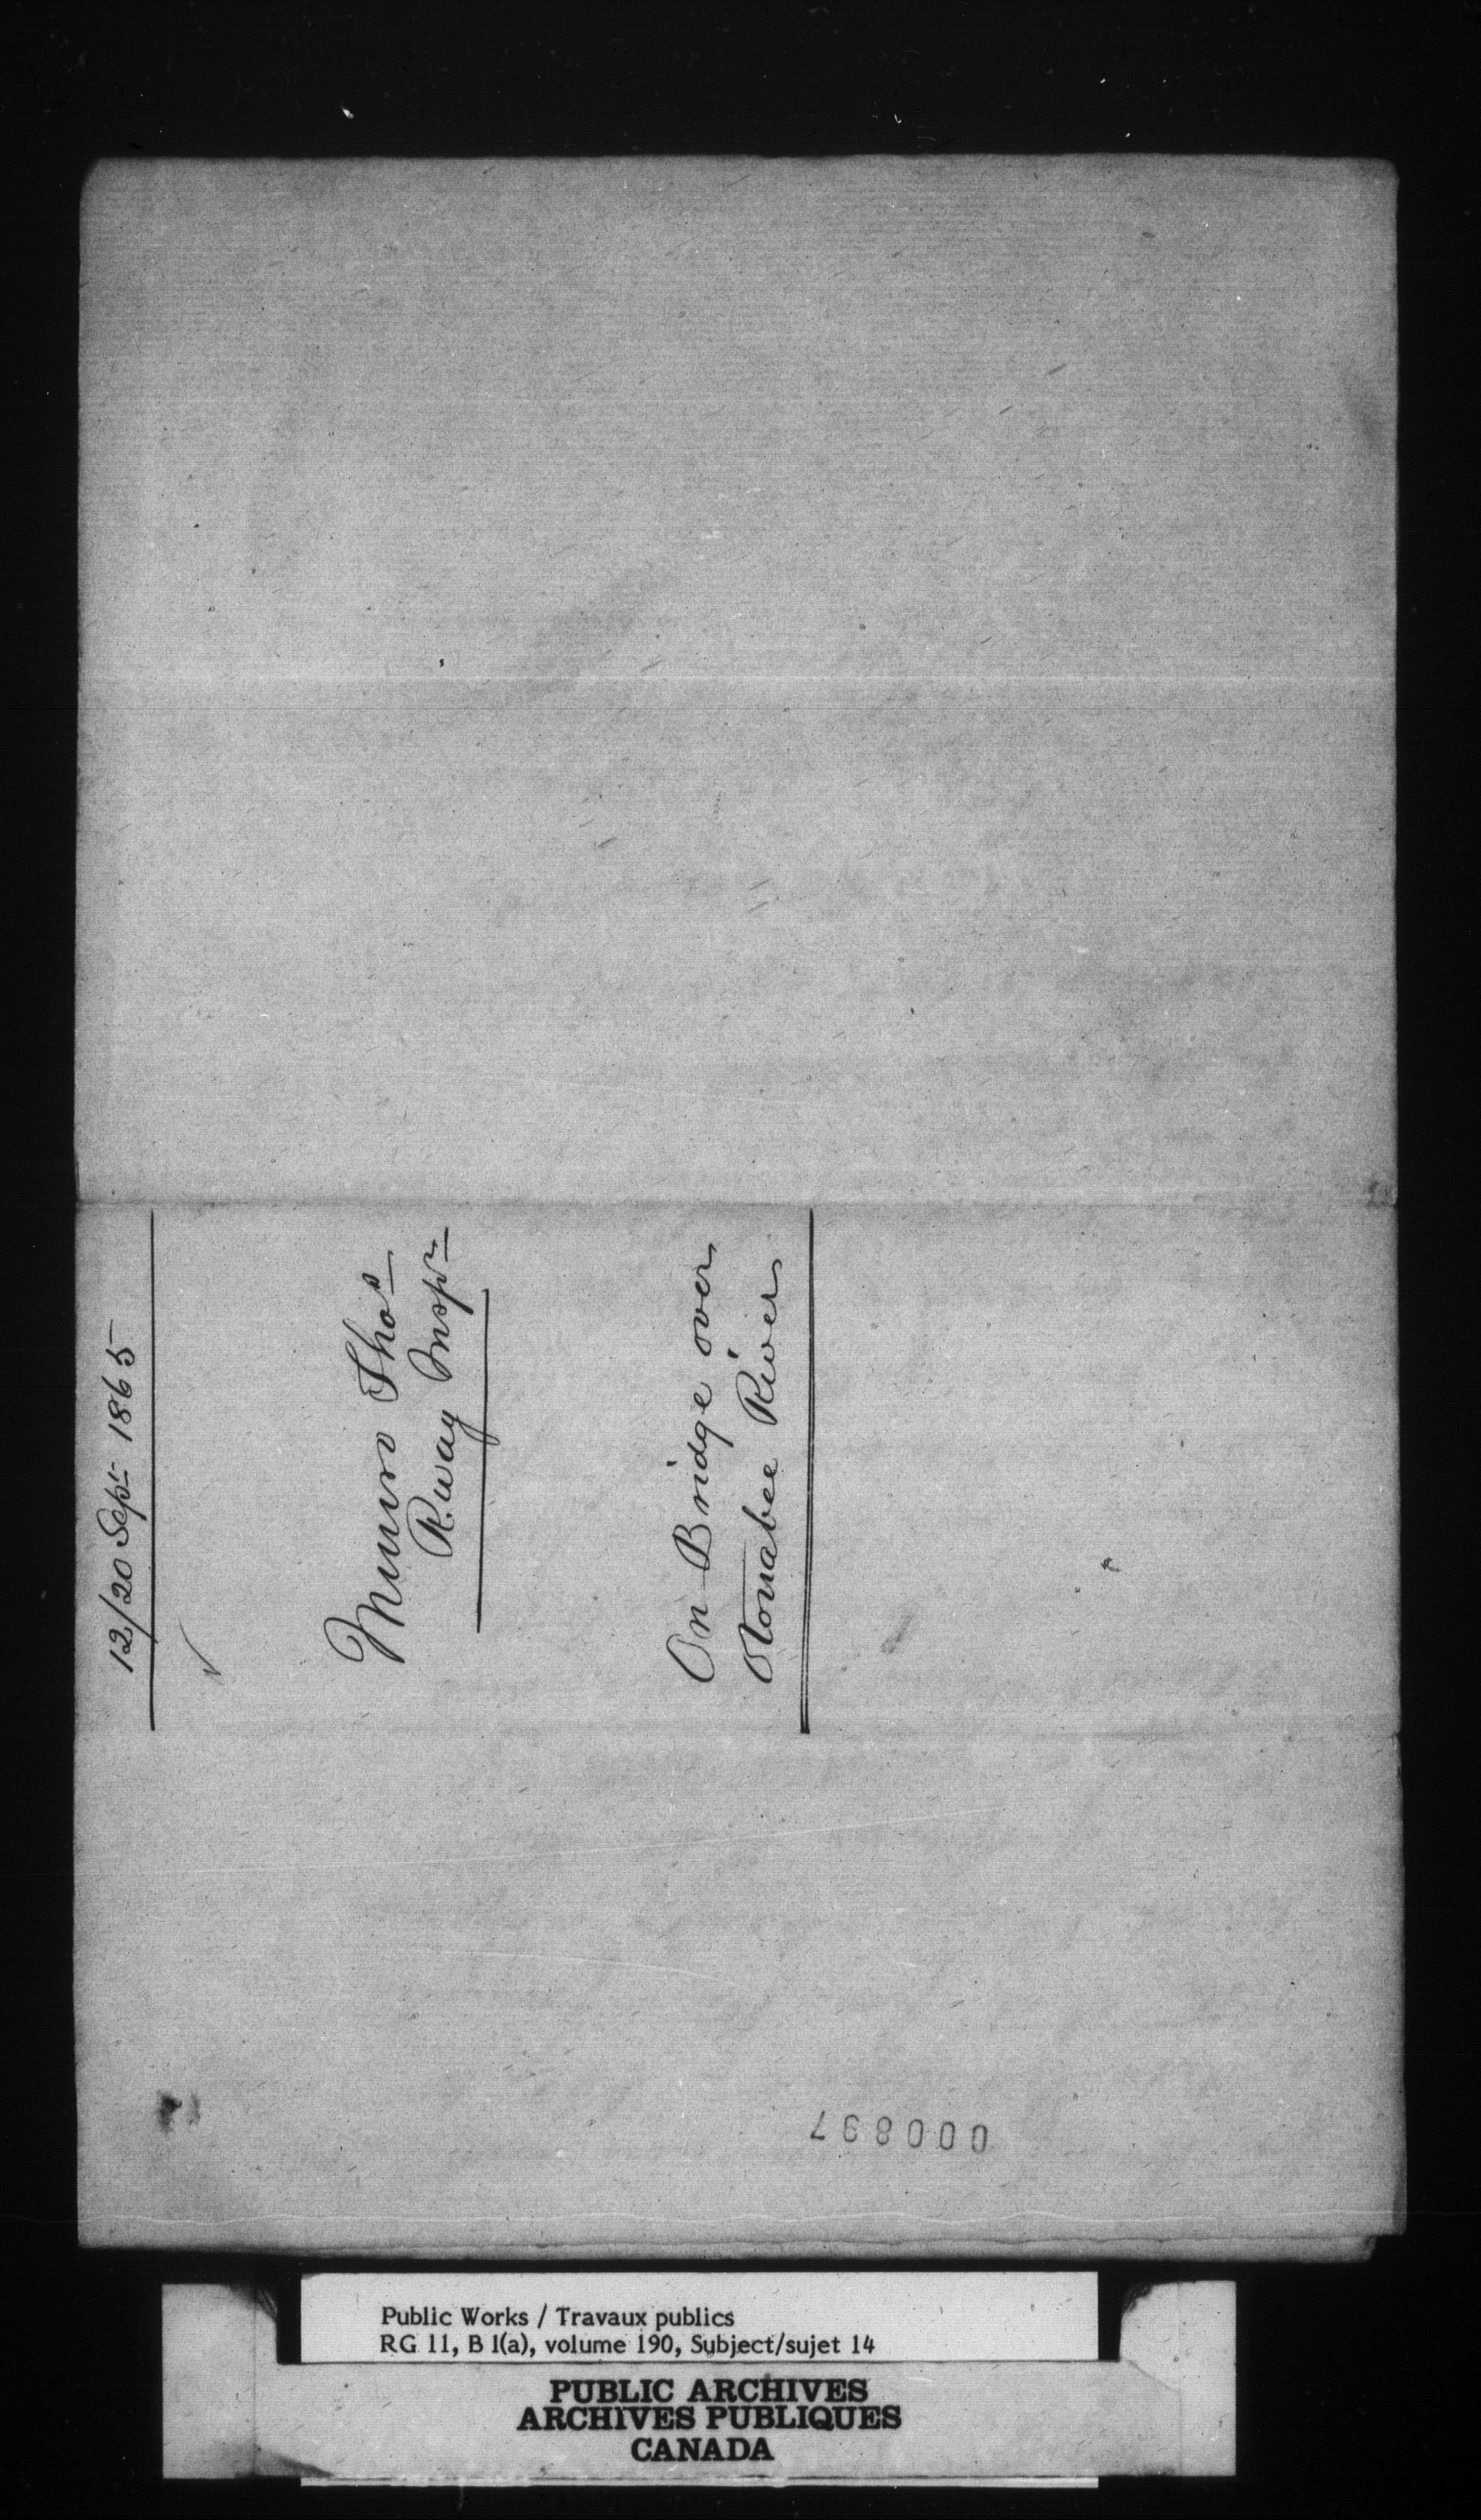 12/20 Sepr 1865
Munro Thos
R.way Inspr
On Bridge over
Otonabee River
000897
Public Works / Travaux publics
RG 11, B 1(a), volume 190, Subject/sujet 14
PUBLIC ARCHIVES
ARCHIVES PUBLIQUES
CANADA